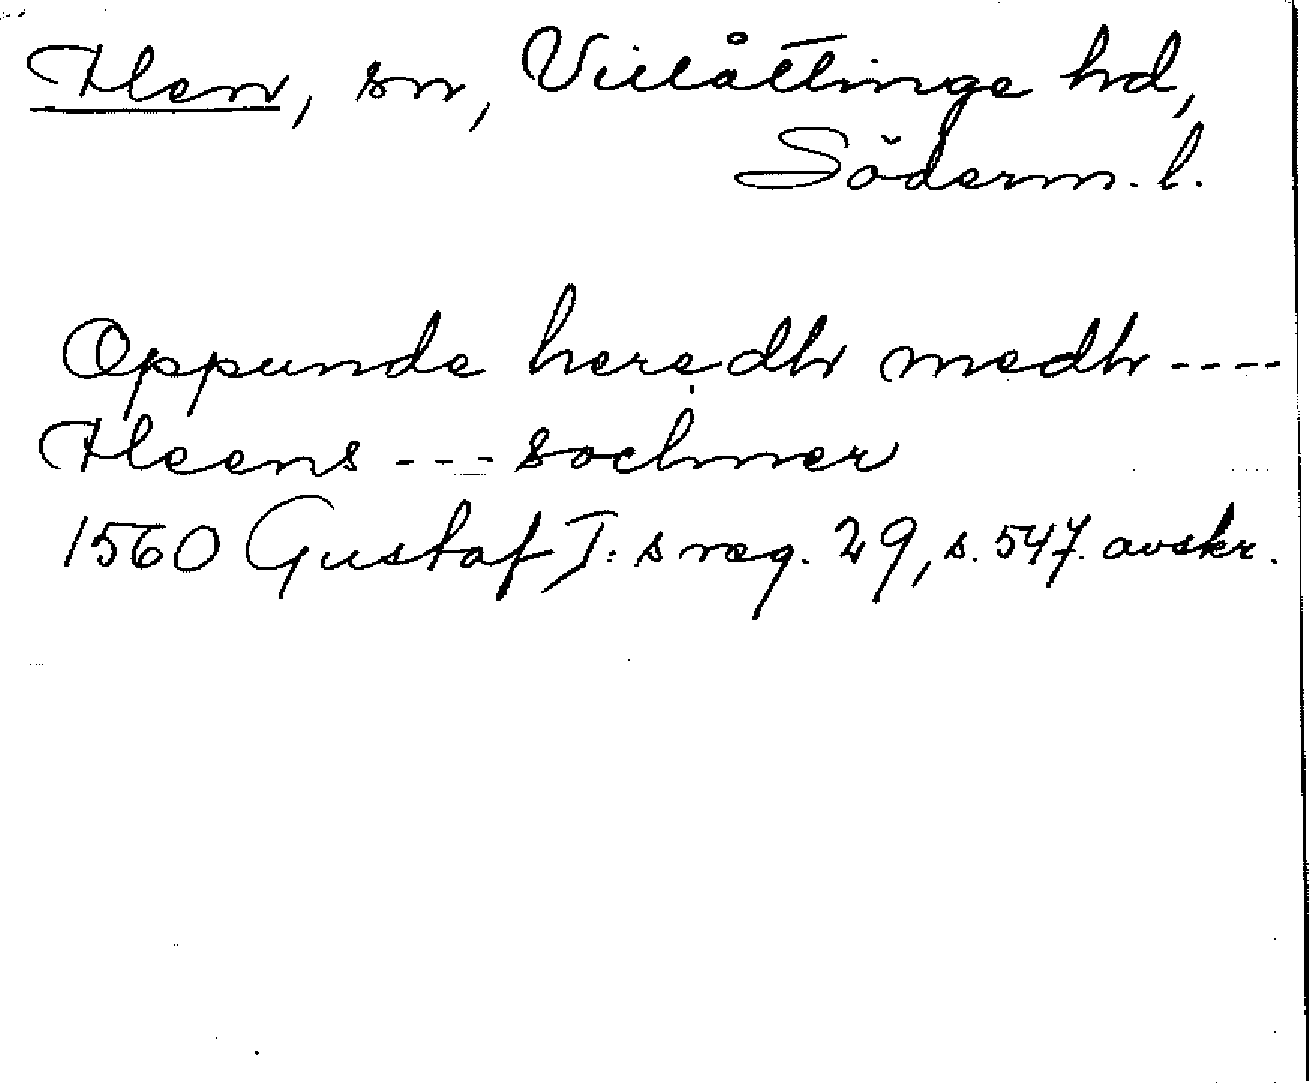 Flen, sn, Villåttinge hd,
Söderm. l.
Oppunde heredh medh ----
Fleens --- sochner
1560 Gustaf I: s reg. 29, s. 547. avskr.